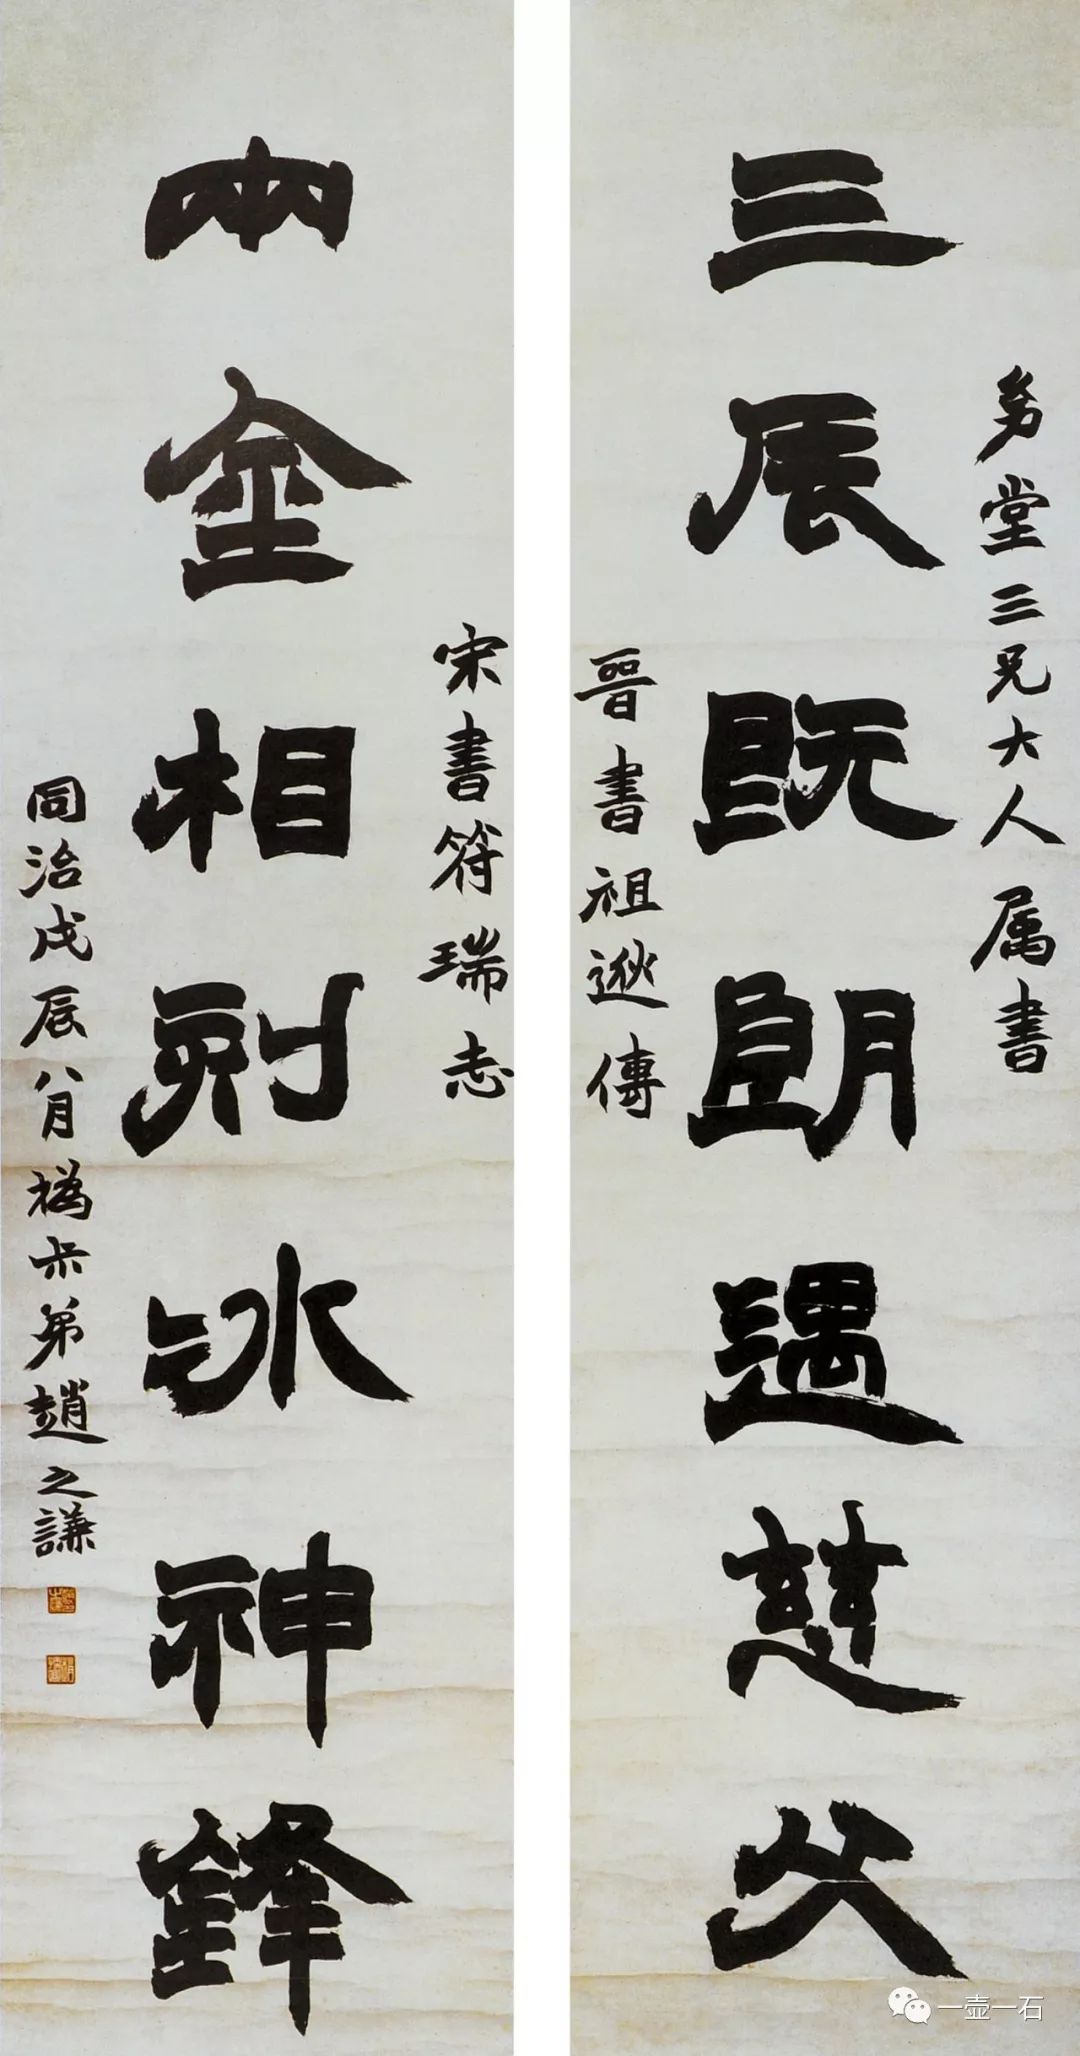 幼堂三兄大人属書
三辰既朗遇慈父
晉書祖逖傳
宋書符瑞志
兩金相刻冰神鋒
同治戊辰八月撝尗弟趙之謙
一壶一石